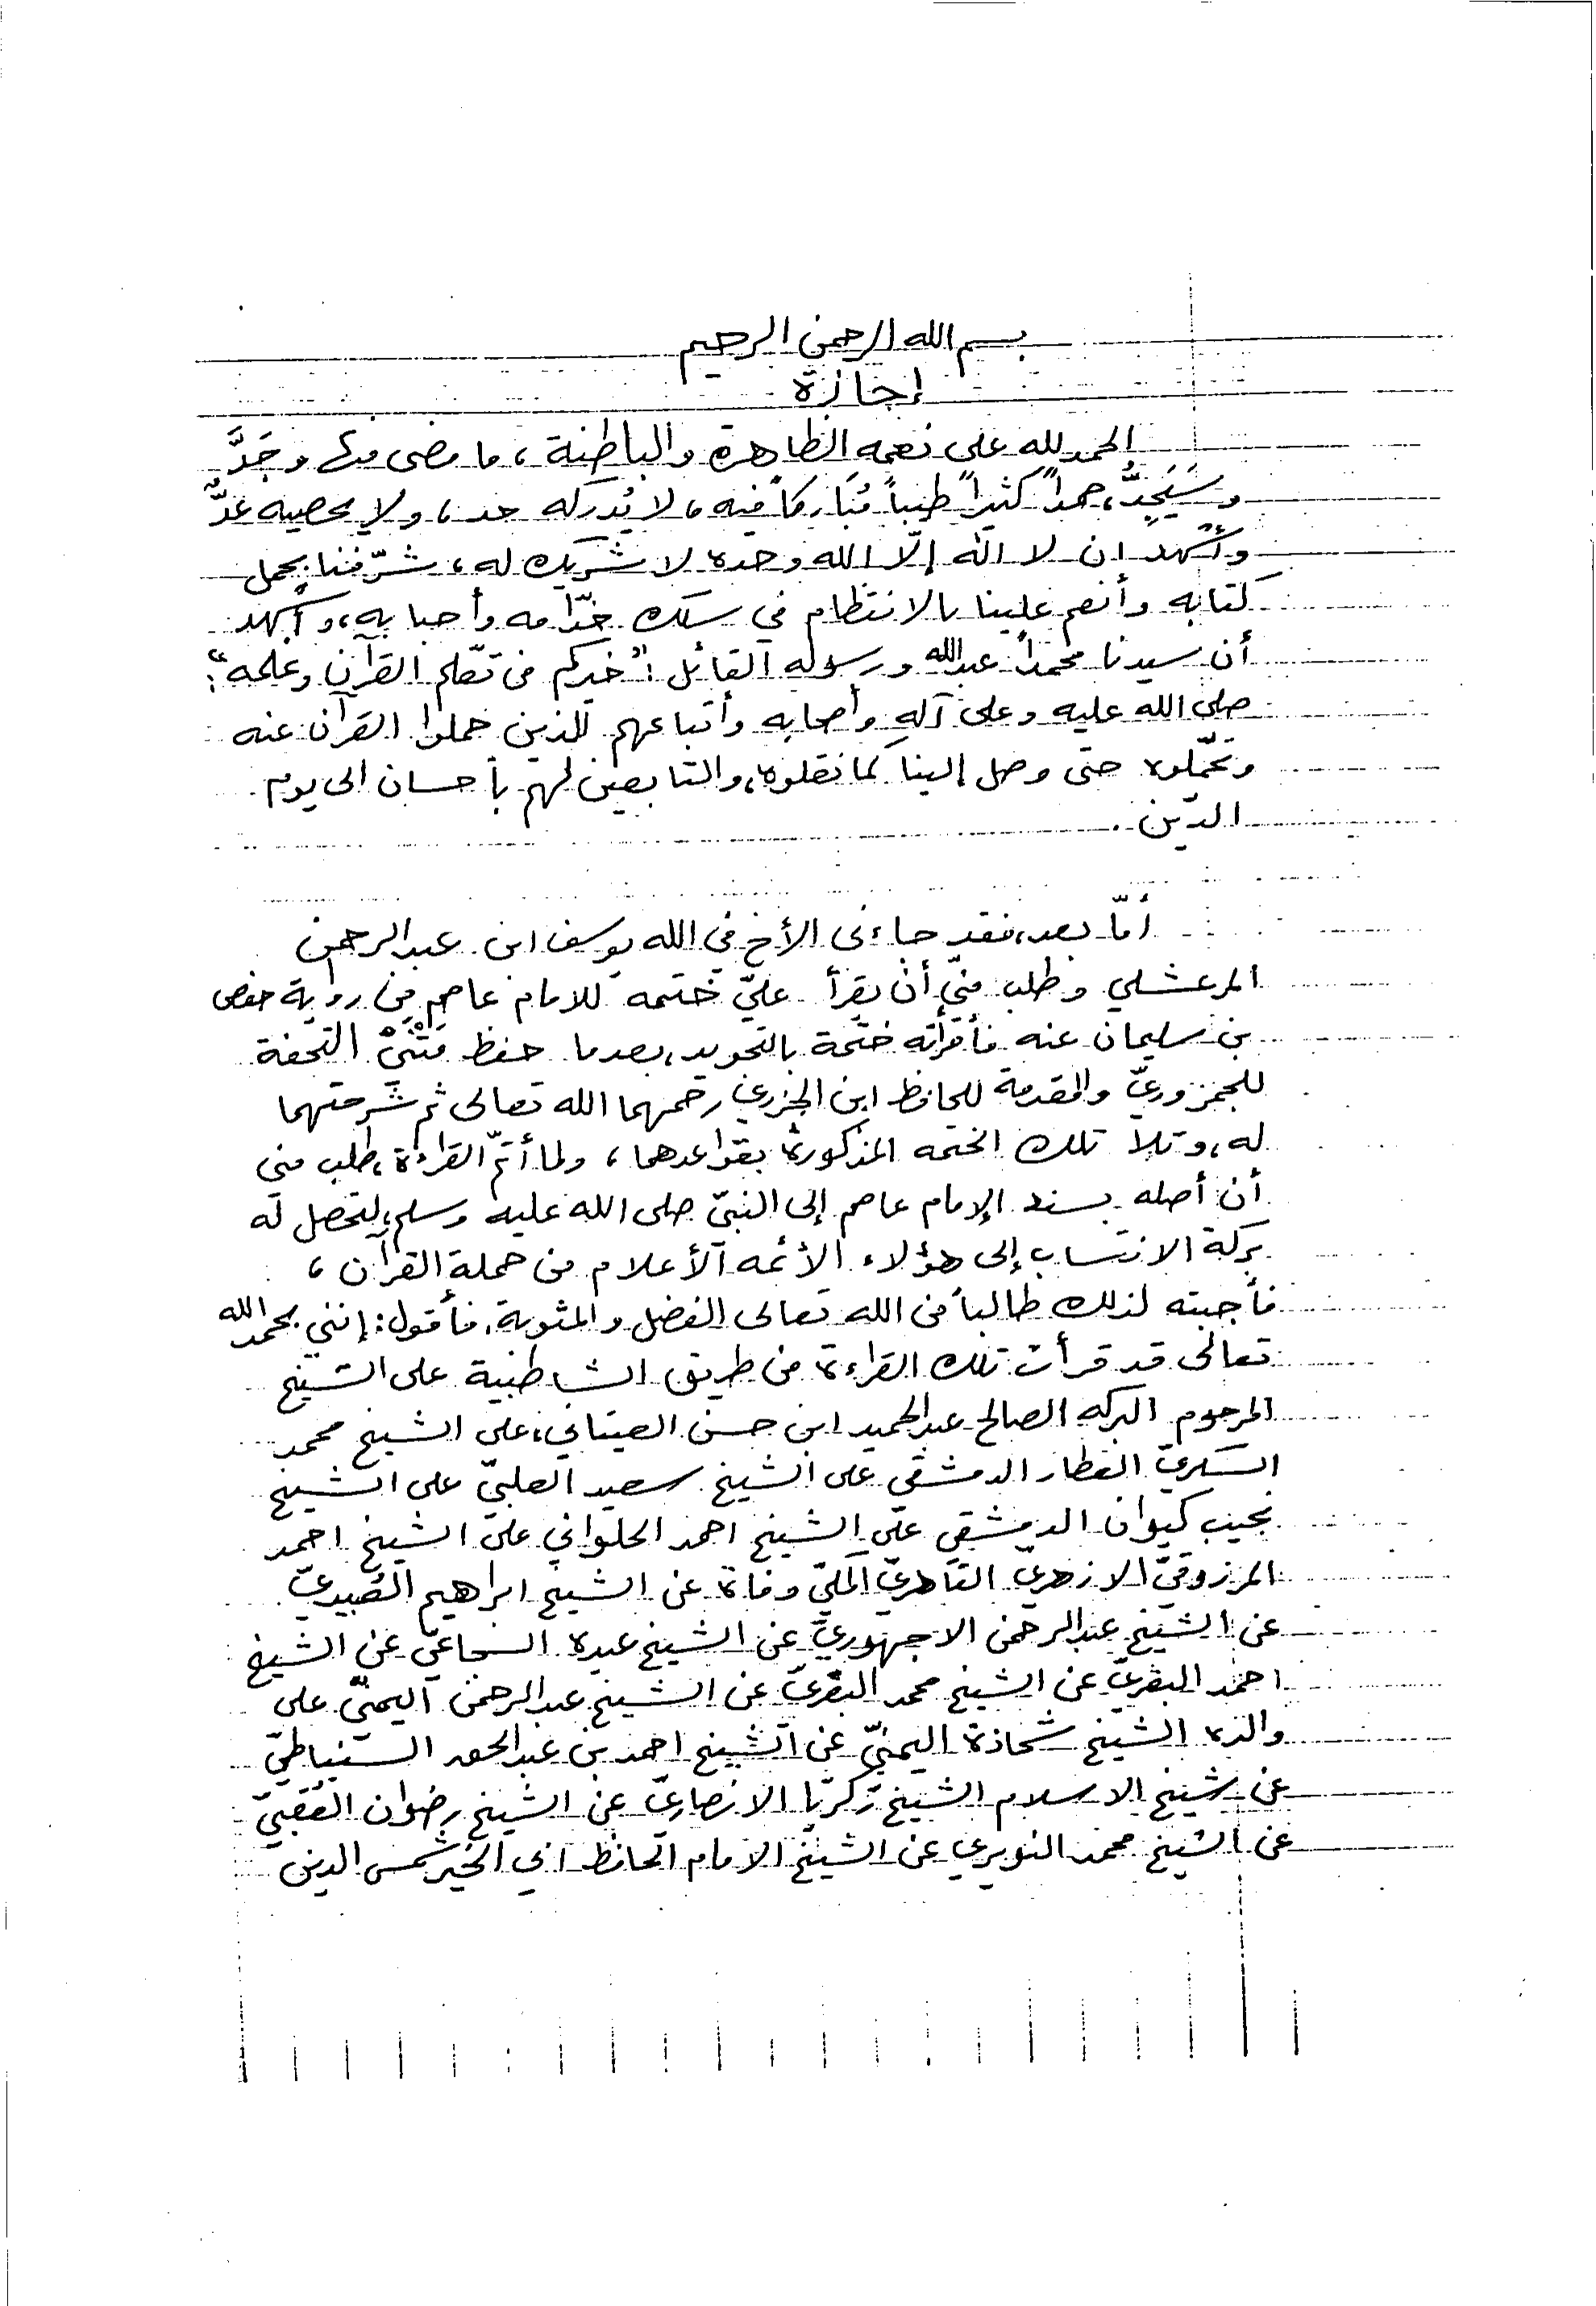 بسم الله الرحمن الرحيم
إجازة
الحمد لله على نعمه الظاهرة والباطنة، ما مضى منها وجَدَّ
وسَيَجِدُّ، حمداً كثيراً طيباً مُبَاركاً فيه، لا يُدركه حد، ولا يحصيه عدٌّ
وأشهد ان لا اله إلّا الله وحده لا شريك له، شرّفننا بحمل
كتابه وأنعم علينا بالانتظام في سلك خدّامه وأحبابه، وأشهد
أن سيدنا محمداً عبدالله ورسوله القائل: "خيركم من تعّلم القرآن وعلمه":
صلى الله عليه وعلى آله وأصحابه وأتباعهم الذين حملوا القرآن عنه
وتحمّلوه حتى وصل إلينا كما نقلوه، والتابعين لهم بأحسان الى يوم
الدّين.
أمّا بعد، فقد جاءني الأخ في الله يوسف ابن عبدالرحمن
المرعشلي وطلب منّي أن يقرأ عليّ ختمه للامام عاصم من رواية حفص
بن سليمان عنه فأقرأته ختمة بالتجويد، بعدما حفظ مَتْنَيْ التحفة
للجمزوريّ والمقدمة للحافظ ابن الجزري رحمهما الله تعالى ثم شرحتهما
له، وتلا تلك الختمه المذكورة بقواعدهما، ولما أتمّ القراءة، طلب مني
أن أصله بسند الإمام عاصم إلى النبيّ صلى الله عليه وسلم، لتحصل له
بركة الانتساب إلى هؤلاء الأئمه الأعلام من حملة القرآن،
فأجبته لذلك طالباً من الله تعالى الفضل والمثوبة. فأقول: إنني بحمد الله
تعالى قد قرأت تلك القراءة من طريق الشاطبية على الشيخ
المرحوم البركه الصالح عبدالحميد ابن حسن العيتاني، على الشيخ محمد
السكريّ القطار الدمشقي على الشيخ سعيد العلبيّ على الشيخ
نجيب كيوان الدمشقي على الشيخ احمد الحلواني على الشيخ احمد
المرزوقيّ الازهريّ القاهريّ المكيّ وفاة عن الشيخ ابراهيم العُبيديّ
عن الشيخ عبدالرحمن الاجهوريّ عن الشيخ عبده السجاعيّ عن الشيخ
احمد البقريّ عن الشيخ محمد البقريّ عن الشيخ عبدالرحمن اليمنّي على
والده الشيخ شحاذة اليمنيّ عن الشيخ احمد بن عبدالحق السنباطيّ
عن شيخ الاسلام الشيخ زكريّا الانصاريّ عن الشيخ رضوان العُقبيّ
عن الشيخ محمد النويري عن الشيخ الامام الحافظ ابي الخير شمس الدين